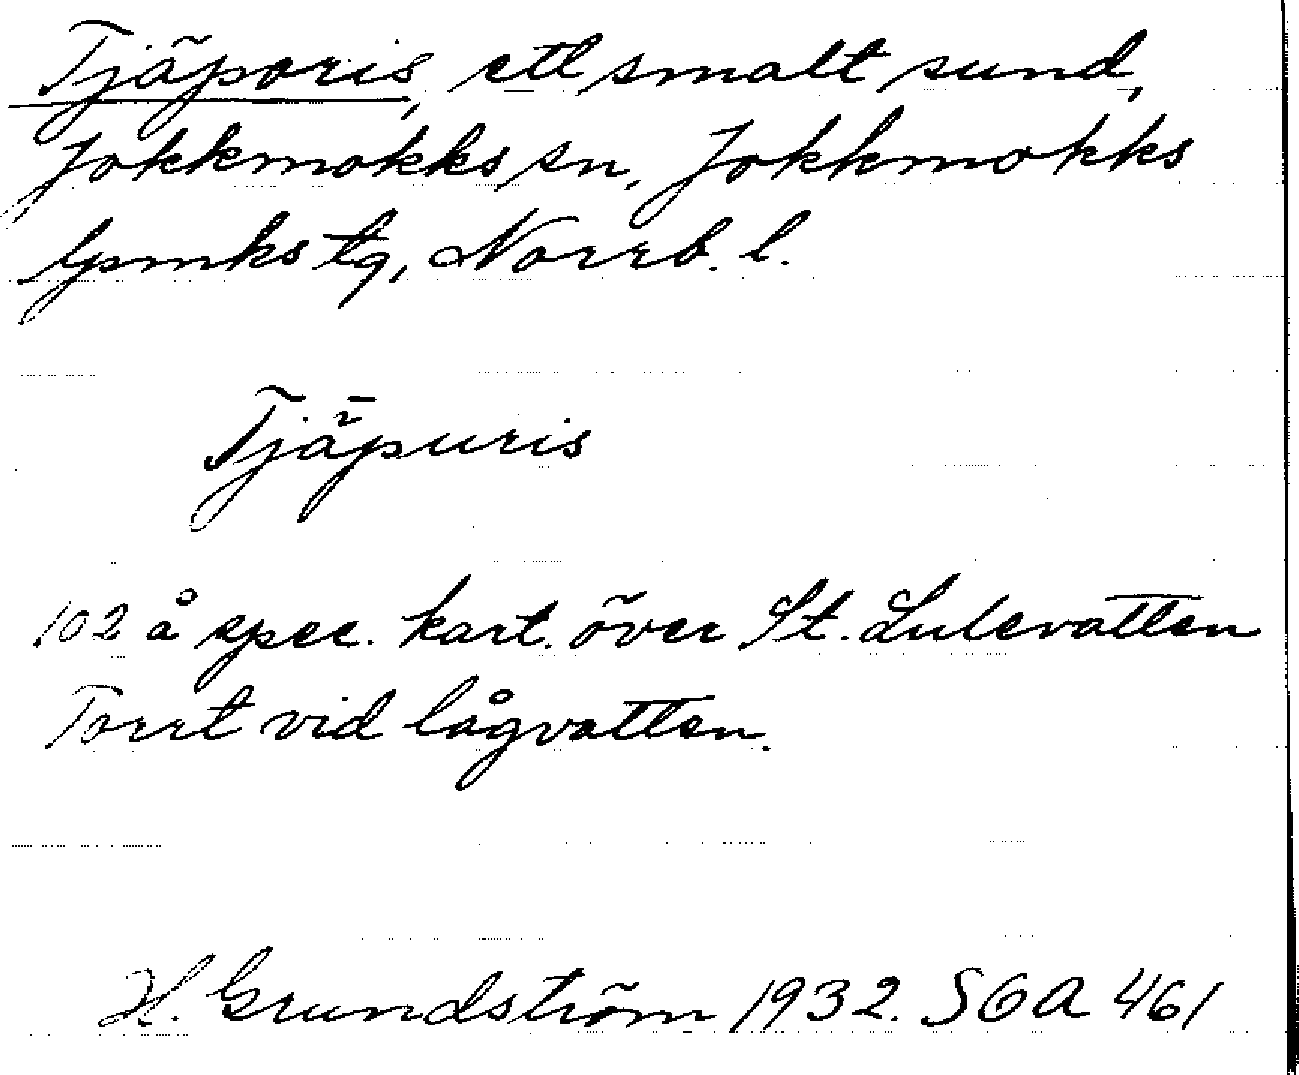 Tjäporis, ett smalt sund,
Jokkmokks sn, Jokkmokks
lpmks tg, Norrb. l.
Tjǟpuris
102 å spec. kart. över St. Lulevatten
Torrt vid lågvatten.
H. Grundström 1932. SOA 461